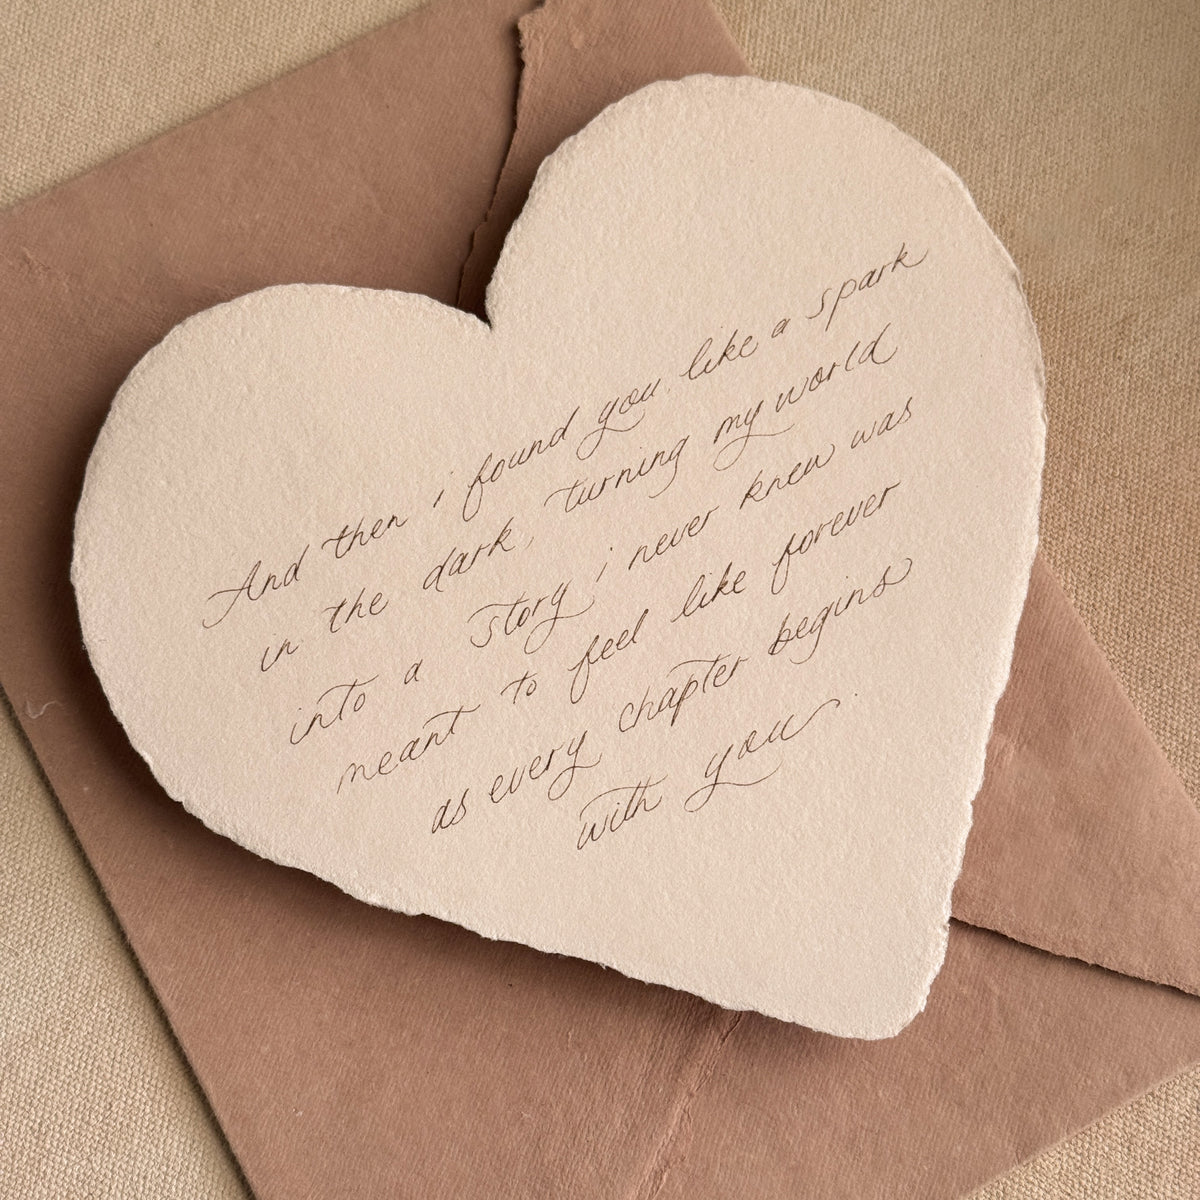 And then i found you, like a spark
in the dark, turning my world
into a story i never knew was
meant to feel like forever
as every chapter begins
with you